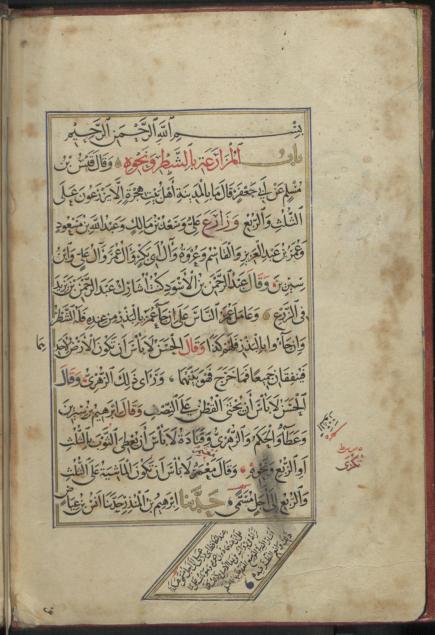 بسم الله الرحمن الرحيم
باب المزارعة بالشطر ونحوه وقال قيس بن
مسلم عن أبي جعفر قال ما بالمدينة أهل بيت هجرة إلا يزرعون على
الثلث والربع وزارع علي وسعد بن مالك وعبد الله بن مسعود
وعمر بن عبد العزيز والقاسم وعروة وآل أبي بكر وآل عمر وآل علي وابن
سيرين وقال عبد الرحمن بن الأسود كنت أشارك عبد الرحمن بن يزيد
في الزرع وعامل عمر الناس على إن جاء عمر بالبذر من عنده فله الشطر
وإن جاءوا بالبذر فلهم كذا وقال الحسن لا بأس أن تكون الأرض لأحدهما
فينفقان جميعا فما خرج فهو بينهما ورأى ذلك الزهري وقال
الحسن لا بأس أن يجتنى القطن على النصف وقال إبراهيم وابن سيرين
وعطاء والحكم والزهري وقتادة لا بأس أن يعطي الثوب بالثلث
أو الربع ونحوه وقال معمر لا بأس أن تكون الماشية على الثلث
والربع إلى أجل مسمى حدثنا إبراهيم بن المنذر حدثنا أنس بن عياض